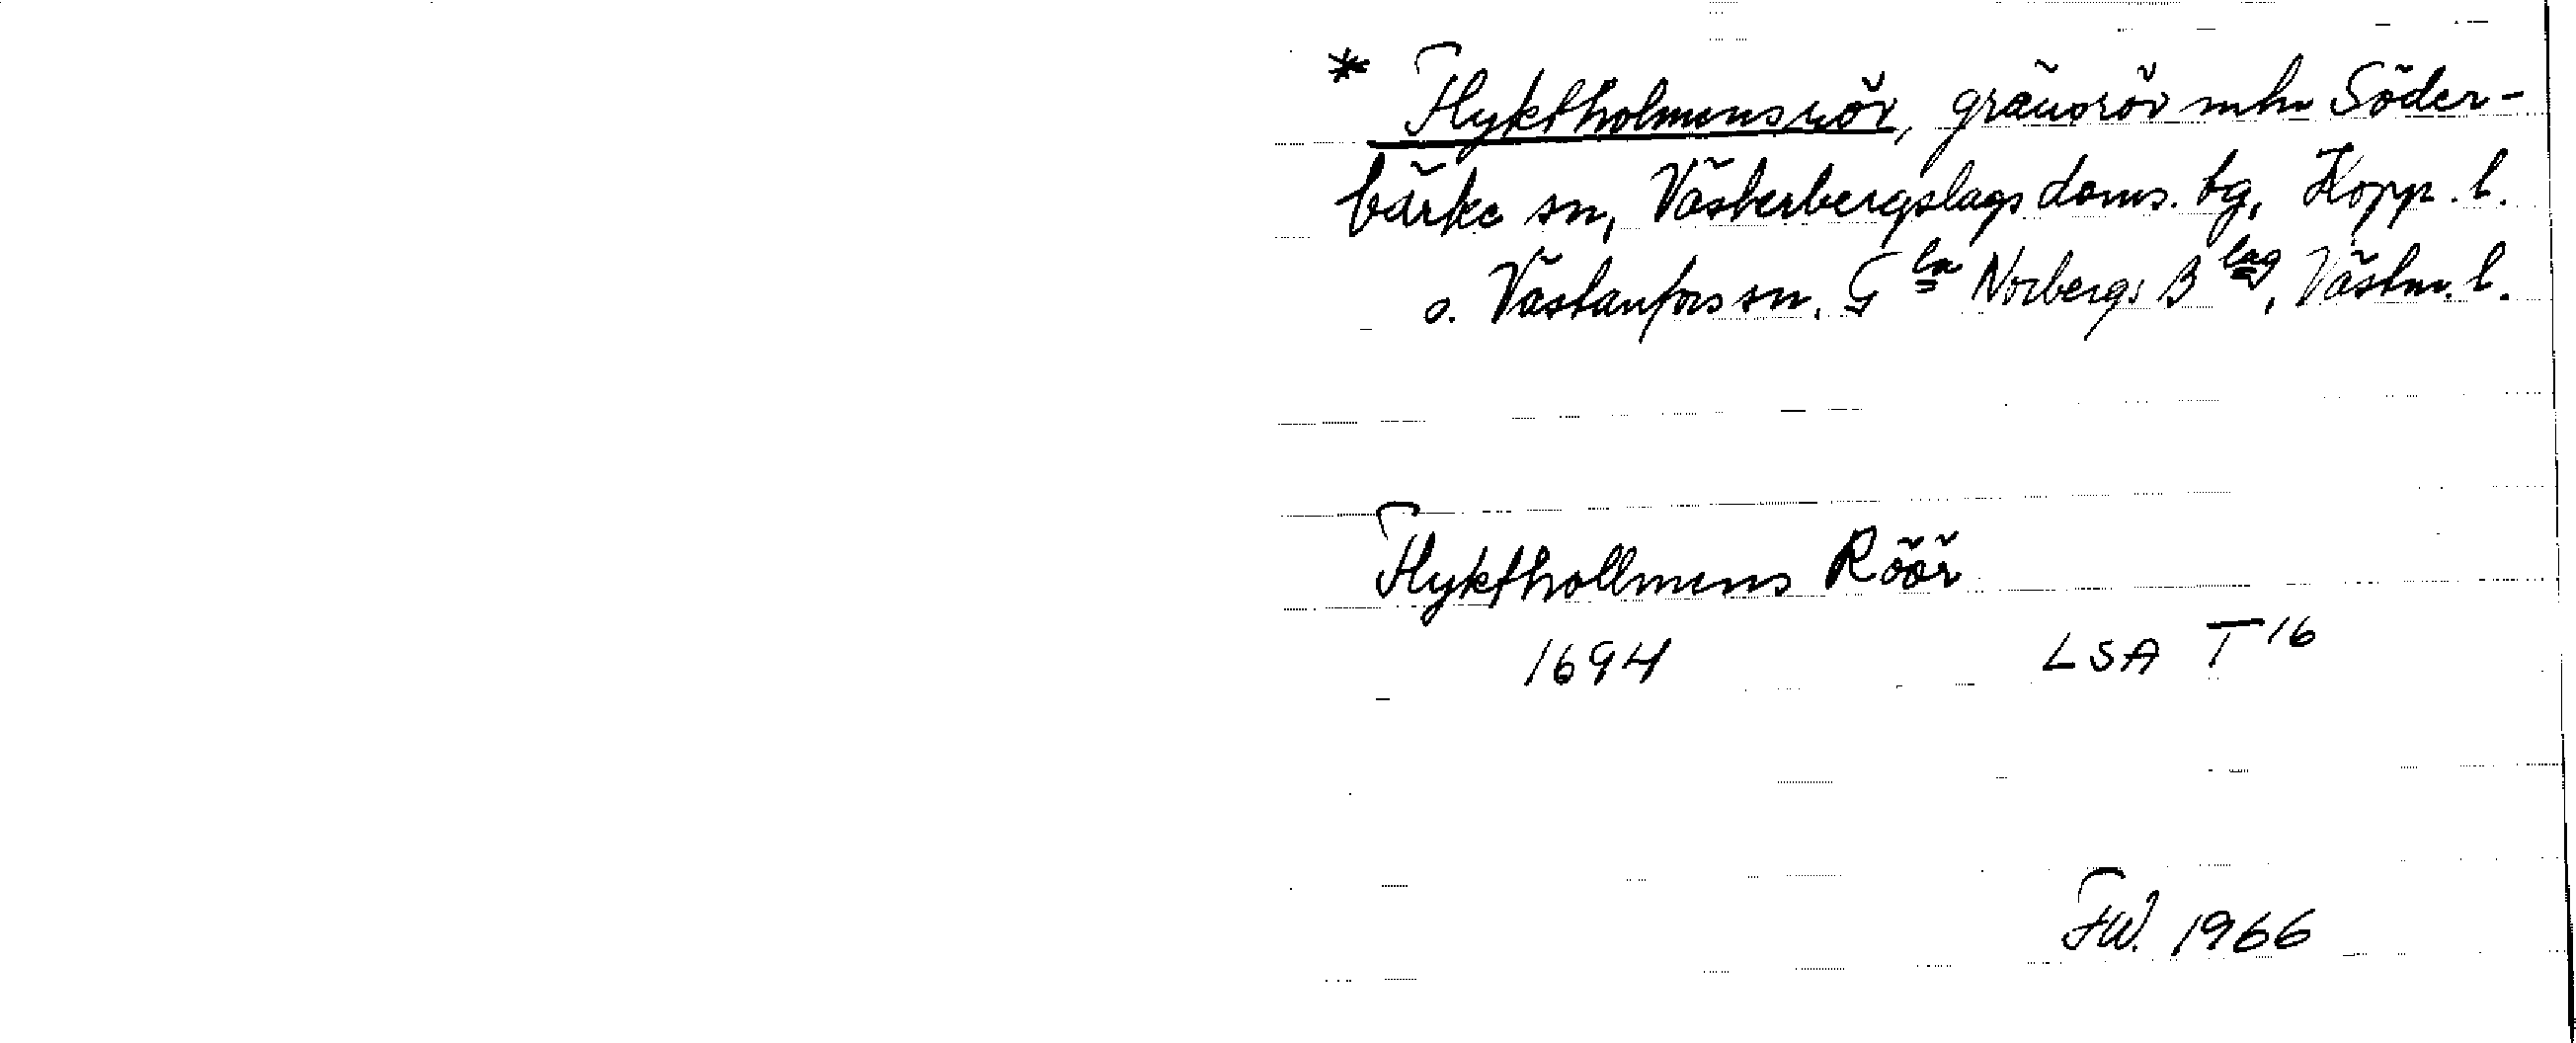 * Flyktholmensrör, gränsrör mln Söder-
bärke sn, Västerbergslags doms. tg, Kopp. l.
o. Västanfors sn. Gla Norbergs Blag, Västm. l.
Flykthollmens Röör
1694 LSA T 16
FW. 1966